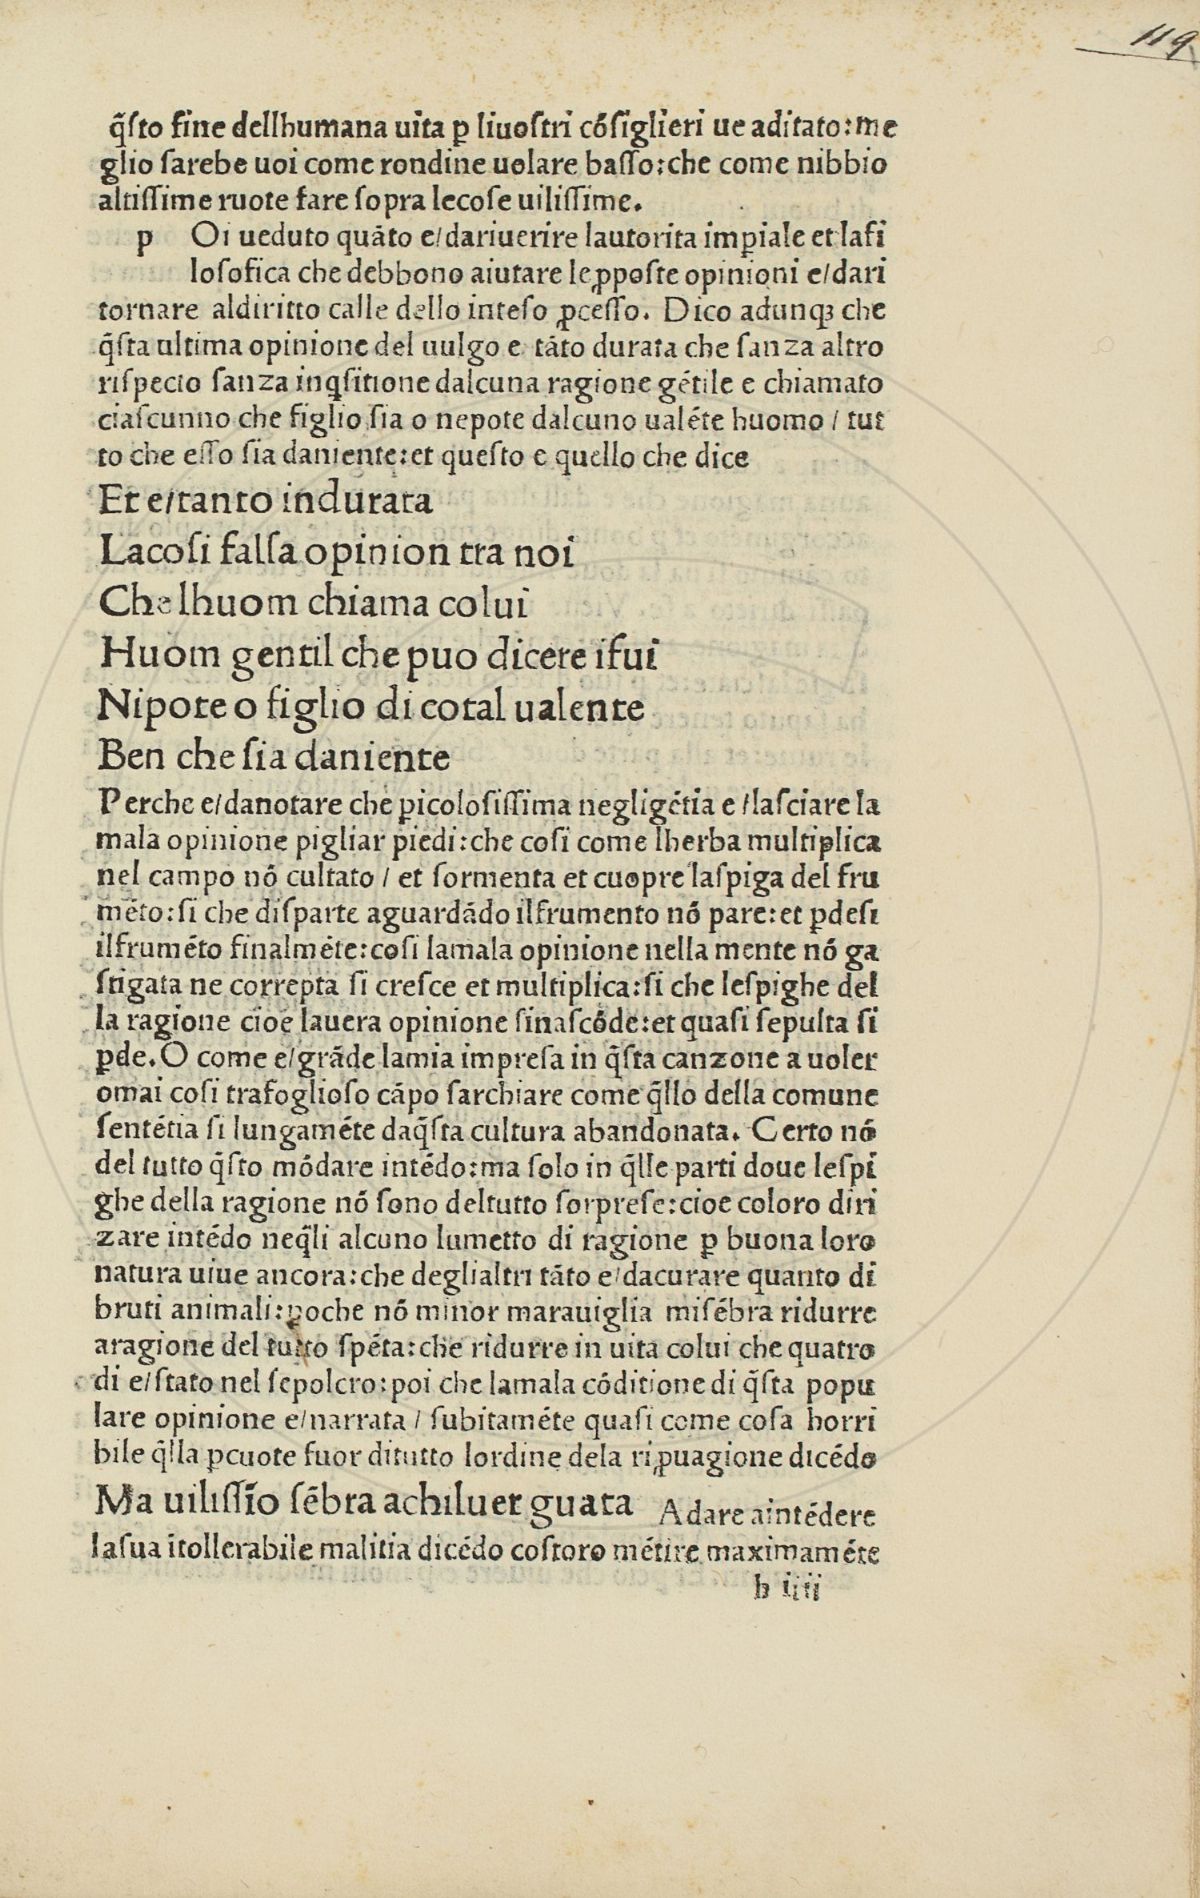 119
q̃ſto fine dellhumana uita ꝑ liuoſtri cóſiglieri ue aditato:me
glio ſarebe uoi come rondine uolare baſſo:che come nibbio
altiſſime ruote fare ſopra lecoſe uiliſſime.
p Oi ueduto quãto e/dariuerire lautorita imꝑiale et lafi
loſofica che debbono aiutare leꝓpoſte opinioni e/dari
tornare aldiritto calle dello inteſo ꝓceſſo. Dico adunqꝫ che
q̃ſta ultima opinione del uulgo e tãto durata che ſanza altro
riſpecto ſanza inq̃ſitione dalcuna ragione gétile e chiamato
ciaſcunno che figlio ſia o nepote dalcuno ualéte huomo / tut
to che eſſo ſia daniente:et queſto e quello che dice
Et e/tanto indurata
Lacoſi falſa opinion tra noi
Che lhuom chiama colui
Huom gentil che puo dicere ifui
Nipote o figlio di cotal ualente
Ben che ſia daniente
Perche e/danotare che ꝑicoloſiſſima negligétia e /laſciare la
mala opinione pigliar piedi:che coſi come lherba multiplica
nel campo nó cultato / et ſormenta et cuopre laſpiga del fru
méto:ſi che diſparte aguardãdo ilfrumento nó pare:et ꝑdeſi
ilfruméto finalméte:coſi lamala opinione nella mente nó ga
ſtigata ne correpta ſi creſce et multiplica:ſi che leſpighe del
la ragione cioe lauera opinione ſinaſcóde:et quaſi ſepulta ſi
ꝑde. O come e/grãde lamia impreſa in q̃ſta canzone a uoler
omai coſi trafoglioſo cãpo ſarchiare come q̃llo della comune
ſentétia ſi lungaméte daq̃ſta cultura abandonata. Certo nó
del tutto q̃ſto módare intédo:ma ſolo in q̃lle parti doue leſpi
ghe della ragione nó ſono deltutto ſorpreſe:cioe coloro diri
zare intédo neq̃li alcuno lumetto di ragione ꝑ buona loro
natura uiue ancora:che deglialtri tãto e/dacurare quanto di
bruti animali:ꝑoche nó minor marauiglia miſébra ridurre
aragione del tutto ſpéta:che ridurre in uita colui che quatro
di e/ſtato nel ſepolcro:poi che lamala códitione di q̃ſta popu
lare opinione e/narrata / ſubitaméte quaſi come coſa horri
bile q̃lla ꝑcuote fuor ditutto lordine dela riꝓuagione dicédo
Ma uiliſſĩo ſébra achiluer guata Adare aintédere
laſua ĩtollerabile malitia dicédo coſtoro métire maximaméte
h iiii